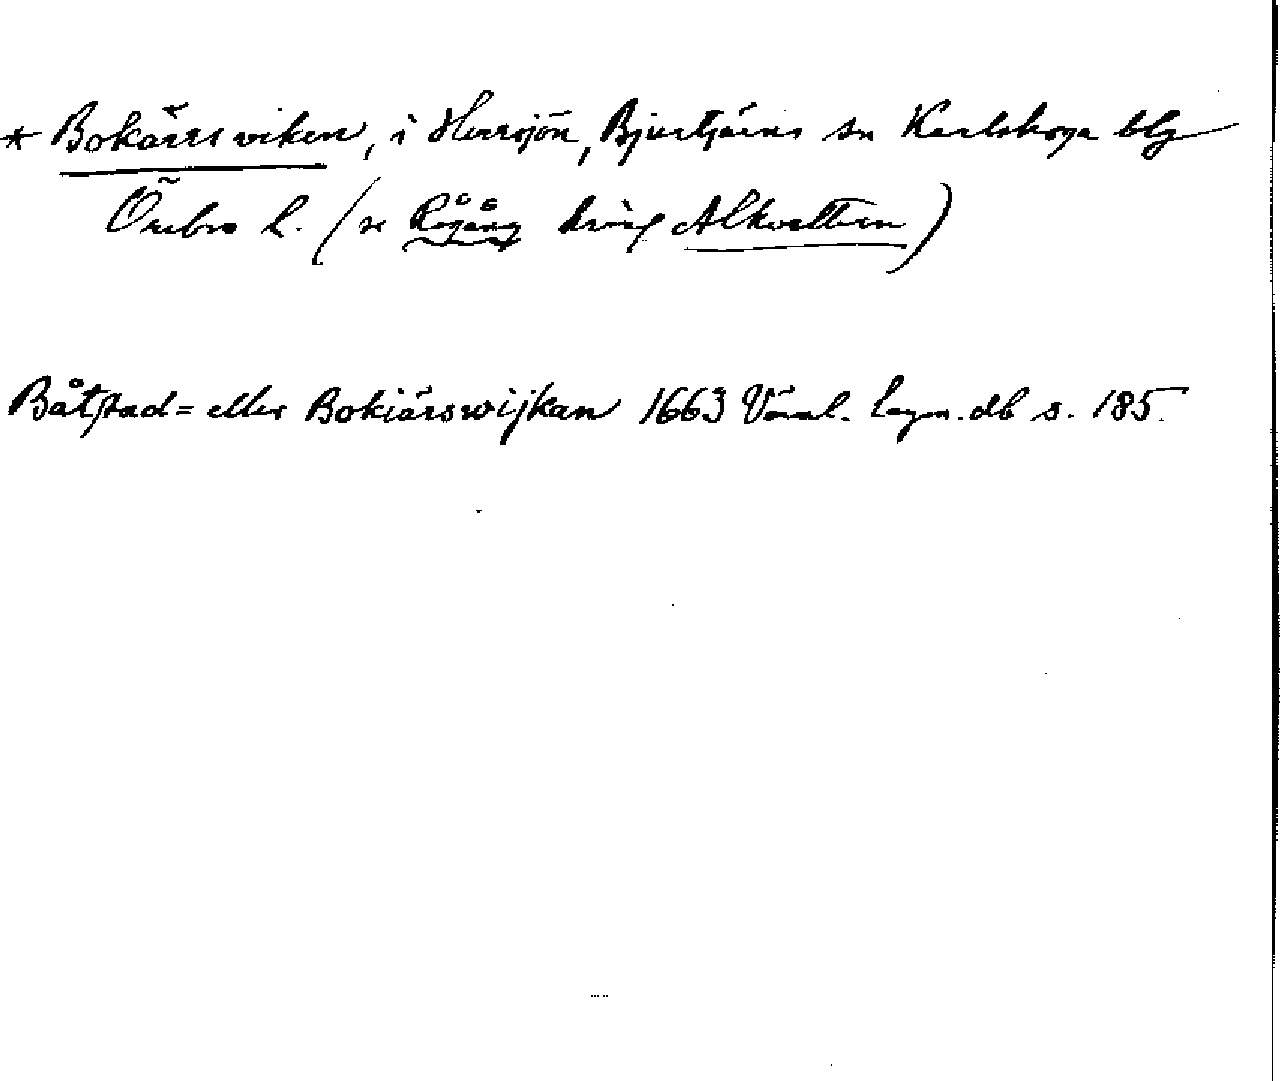 * Bokärrsviken, i Herrsjön, Bjurtjärns sn Karlskoga blg
Örebro l. (se Rågång kring Alkvettern)
Båtstad= eller Bokiärswijkan 1663 Värml. lagm.db s. 185.